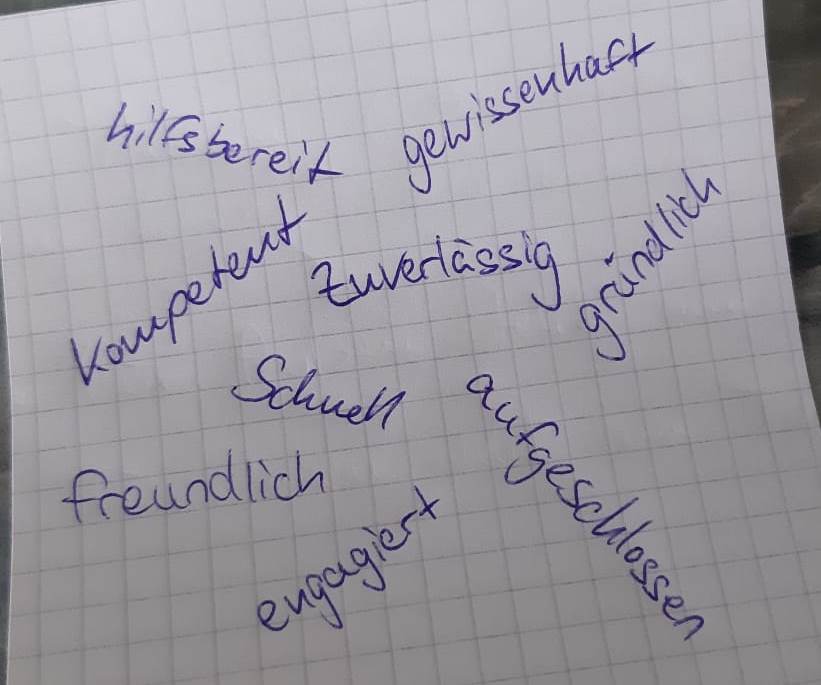 hilfsbereit
gewissenhaft
kompetent
zuverlässig
gründlich
Schnell
aufgeschlossen
freundlich
engagiert